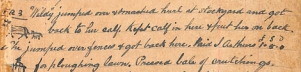 23 Wildy jumped over & smashed hurl at stockyard and got
back to her calf. Kept calf in here & put her on back.
She jumped over fences & got back here. Paid J. Arthurs 1-5-0
for ploughing lawn. Pressed bale of crutchings.